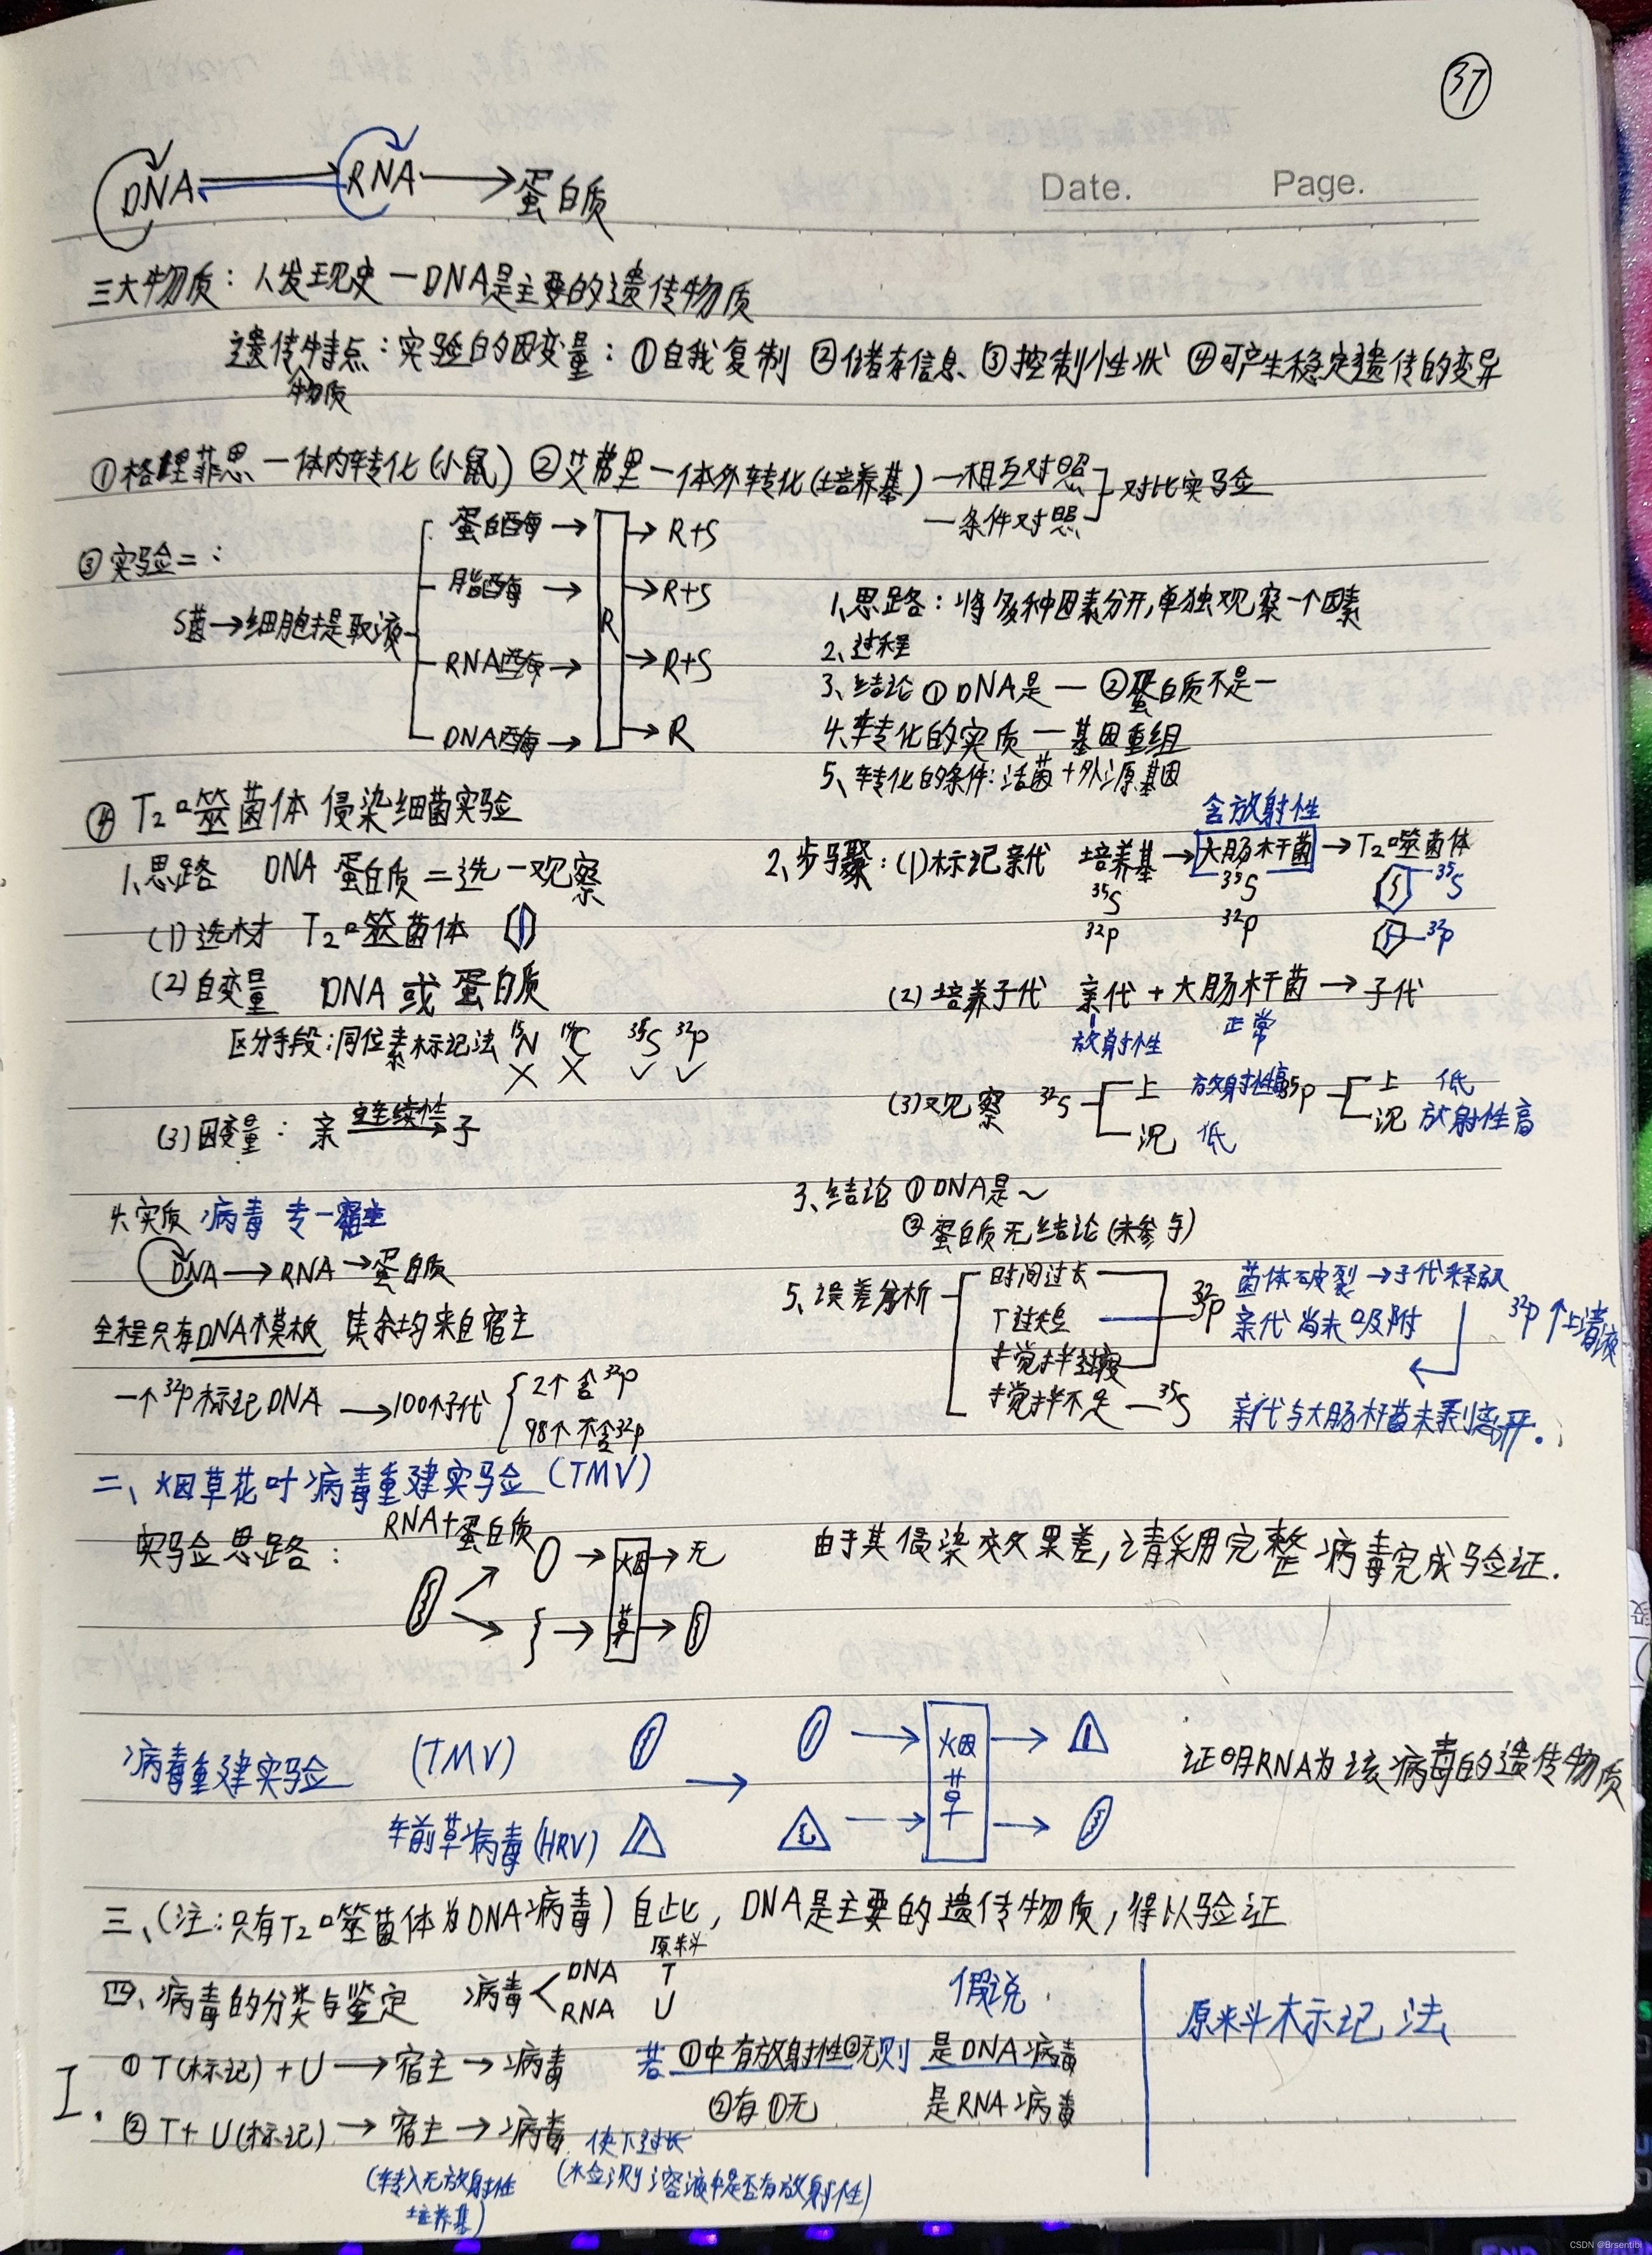 37
DNA RNA 蛋白质
Date. Page.
三大物质：人发现史一DNA是主要的遗传物质
遗传物质特点：实验的因变量：①自我复制 ②储存信息 ③控制性状 ④可产生稳定遗传的变异
①格里菲思一体内转化(小鼠) ②艾弗里一体外转化(培养基)一相互对照 对比实验
一条件对照
③实验二：
S菌→细胞提取液
蛋白酶→ R →R+S
脂酶→ →R+S
RNA酶→ →R+S
DNA酶→ →R
1、思路：将多种因素分开,单独观察一个因素
2、过程
3、结论 ①DNA是一 ②蛋白质不是一
4、转化的实质一基因重组
5、转化的条件:活菌+外源基因
④ T2噬菌体 侵染细菌实验
1、思路 DNA 蛋白质 二选一观察
(1)选材 T2噬菌体
(2)自变量 DNA 或 蛋白质
区分手段:同位素标记法 15N 14C 35S 32P
× × ✓ ✓
(3)因变量：亲 连续性 子
含放射性
2、步骤：(1)标记亲代 培养基→大肠杆菌→T2噬菌体
35S 35S 35S
32P 32P 32P
(2)培养子代 亲代+大肠杆菌→子代
放射性 正常
(3)观察 32S 上 放射性高 35P 上 低
沉 低 沉 放射性高
3、结论 ①DNA是~
②蛋白质无结论(未参与)
4、实质 病毒 专一宿主
DNA→RNA→蛋白质
全程只有DNA模板 其余均来自宿主
一个32P标记DNA →100个子代 2个含32P
98个不含32P
5、误差分析 时间过长 32P 菌体破裂→子代释放
T过短 亲代尚未吸附 32P↑上清液
搅拌过度
搅拌不足—35S 亲代与大肠杆菌未剥离开.
二、烟草花叶病毒重建实验(TMV)
实验思路： RNA+蛋白质 →烟草→无
由于其侵染效果差,请采用完整病毒完成验证.
病毒重建实验 (TMV) → 烟草 →
车前草病毒(HRV)
证明RNA为该病毒的遗传物质
三、(注:只有T2噬菌体为DNA病毒)自此, DNA是主要的遗传物质,得以验证
四、病毒的分类与鉴定 病毒 DNA T
RNA U
原料
假说
原料标记法
I.
①T(标记)+U→宿主→病毒 若①中有放射性②无则 是DNA病毒
②T+U(标记)→宿主→病毒 ②有①无 是RNA病毒
(转入无放射性培养基)
(检测溶液中是否有放射性)
CSDN @Brsentibi